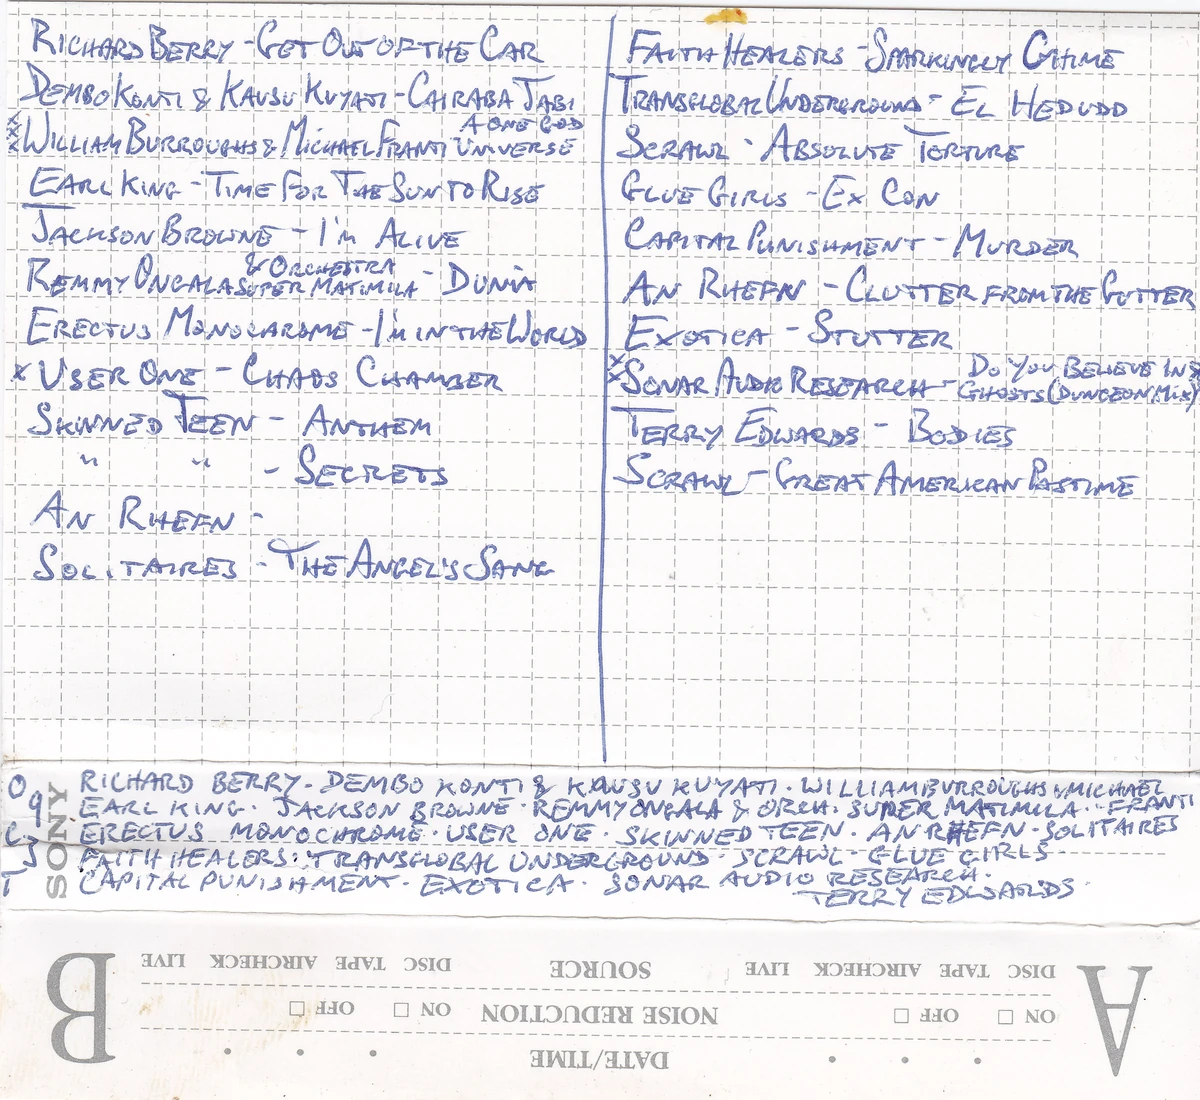 RICHARD BERRY - GET OUT OF THE CAR
DEMBO KONTI & KAUSU KUYATI - CAIRABA JABI
A ONE GOD
xxx WILLIAM BURROUGHS & MICHAEL FRANTI UNIVERSE
EARL KING - TIME FOR THE SUN TO RISE
JACKSON BROWNE - I'M ALIVE
& ORCHESTRA
REMMY ONGALA SUPER MATIMILA - DUNIA
ERECTUS MONOCHROME - I'M IN THE WORLD
x USER ONE - CHAOS CHAMBER
SKINNED TEEN - ANTHEM
" " - SECRETS
AN RHEFN -
SOLITAIRES - THE ANGELS SANG
FAITH HEALERS - SPARKINGLY CHIME
TRANSGLOBAL UNDERGROUND - EL HEDUDD
SCRAWL - ABSOLUTE TORTURE
GLUE GIRLS - EX CON
CAPITAL PUNISHMENT - MURDER
AN RHEFN - CLUTTER FROM THE GUTTER
EXOTICA - STUTTER
xx SONAR AUDIO RESEARCH - DO YOU BELIEVE IN
GHOSTS (DUNGEON MIX)
TERRY EDWARDS - BODIES
SCRAWL - GREAT AMERICAN PASTIME
RICHARD BERRY · DEMBO KONTI & KAUSU KUYATI · WILLIAM BURROUGHS & MICHAEL
EARL KING · JACKSON BROWNE · REMMY ONGALA & ORCH. SUPER MATIMILA · FRANTI
ERECTUS MONOCHROME · USER ONE · SKINNED TEEN · AN RHEFN · SOLITAIRES
FAITH HEALERS · TRANSGLOBAL UNDERGROUND · SCRAWL · GLUE GIRLS
CAPITAL PUNISHMENT · EXOTICA · SONAR AUDIO RESEARCH ·
TERRY EDWARDS ·
O
9
C
3
T
SONY
A
DATE/TIME
NOISE REDUCTION
ON OFF
ON OFF
SOURCE
DISC TAPE AIRCHECK LIVE
DISC TAPE AIRCHECK LIVE
B